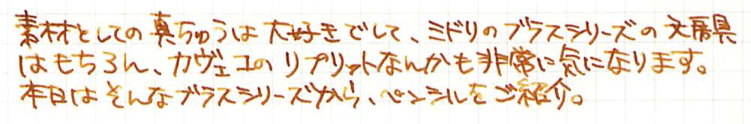 素材としての真ちゅうは大好きでして、ミドリのブラスシリーズの文房具
はもちろん、カヴェコのリプリットなんかも非常に気になります。
本日はそんなブラスシリーズから、ペンシルをご紹介。